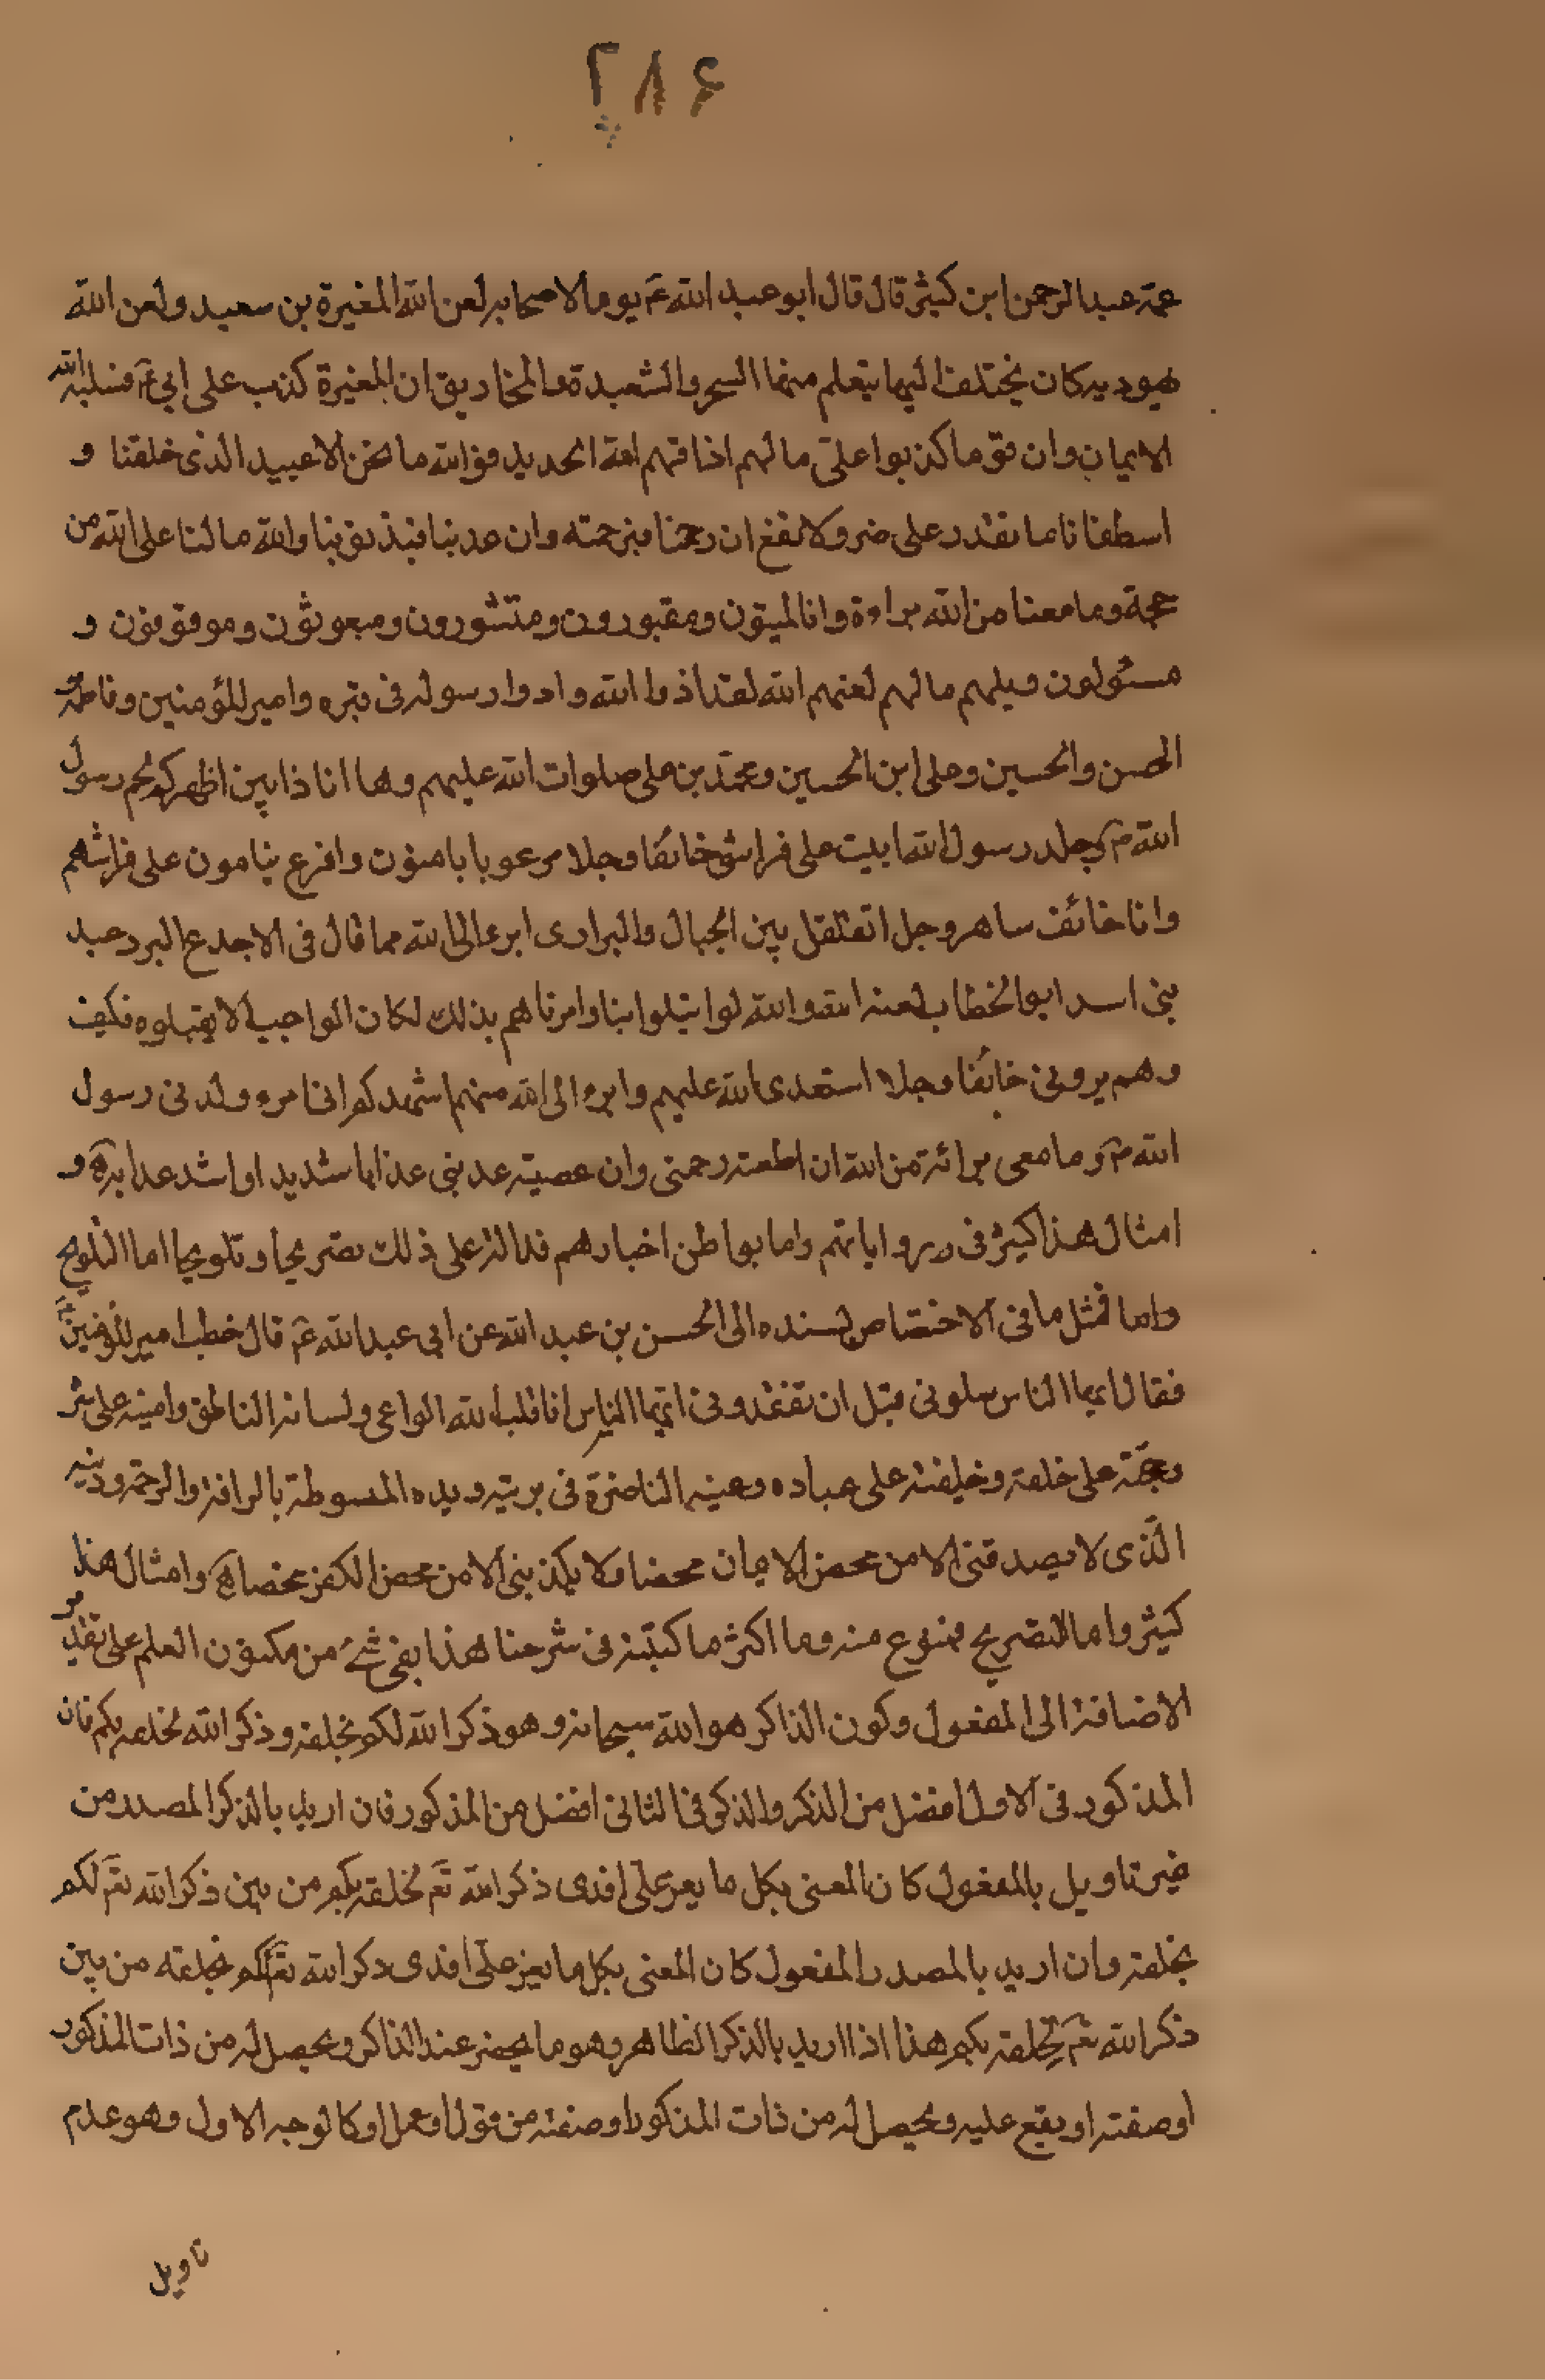 ٢٨٤
عمه عبد الرحمن ابن كثير قال قال ابو عبد الله عم يوما لاصحابه لعن الله المغيرة بن سعيد ولعن الله
يهوديه كان يختلف اليها يتعلم منها السحر والشعبدة والمخاريق ان المغيرة كذب على ابي عم فسلبه الله
الايمان وان قوما كذبوا علي ما لهم اذاقهم الله الحديد فوالله ما نحن الا عبيد الذى خلقنا و
اصطفانا ما نقدر على ضر ولا نفع ان رحمنا فبرحمته وان عذبنا فبذنوبنا والله ما لنا على الله من
حجة وما معنا من الله براءة وانا لميتون ومقبورون ومنتشورون ومبعوثون وموقوفون و
مسئولون ويلهم ما لهم لعنهم الله لقد اذوا الله واذوا رسوله فى قبره وامير المؤمنين وفاطمة و
الحسن والحسين وعلى ابن الحسين ومحمد بن على صلوات الله عليهم وها انا ذا بين اظهركم لحم رسول
الله ص وجلد رسول الله ابيت على فراشى خائفا وجلا مرعوبا يامنون وافزع ينامون على فراشهم
وانا خائف ساهر وجل اتقلقل بين الجبال والبرارى ابرء الى الله مما قال فى الاجدع البرد عبد
بنى اسد ابو الخطاب لعنه الله والله لو ابتلوا بنا وامرناهم بذلك لكان الواجب الا يقبلوه فكيف
وهم يرونى خائفا وجلا استعدى الله عليهم وابرء الى الله منهم اشهدكم انى امرء ولدنى رسول
الله ص وما معى برائة من الله ان اطعته رحمنى وان عصيته عذبنى عذابا شديدا او اشد عذابه ه و
امثال هذا كثير فى رواياتهم واما بواطن اخبارهم فدالة على ذلك تصريحا وتلويحا اما التلويح
واما فمثل ما فى الاختصاص بسنده الى الحسن بن عبد الله عن ابى عبد الله عم قال خطب امير المؤمنين عم
فقال ايها الناس سلونى قبل ان تفقدونى ايها الناس انا قلب الله الواعى ولسانه الناطق وامينه على سره
وحجته على خلقه وخليفته على عباده وعينه الناضرة فى بريته ويده المبسوطة بالرافة والرحمة ودينه
الذى لا يصدقنى الا من محض الايمان محضا ولا يكذبنى الا من محض الكفر محضا ه وامثال هذا
كثير واما التصريح فممنوع منه وما اكثر ما كتبته فى شرحنا هذا بفى شئ من مكنون العلم على تقدير
الاضافة الى المفعول وكون الذاكر هو الله سبحانه وهو ذكر الله لكم بخلقه وذكر الله لخلقه بكم فان
المذكور فى الاول افضل من الذكر والذكر فى الثانى افضل من المذكور فان اريد بالذكر المصدر من
غير تاويل بالمفعول كان المعنى بكل ما يعز على افدى ذكر الله تع لخلقه بكم من بين ذكر الله تع لكم
بخلقه وان اريد بالمصدر المفعول كان المعنى بكل ما يعز على افدى ذكر الله تع لكم بخلقه من بين
ذكر الله تع لخلقه بكم هذا اذا اريد بالذكر الظاهر وهو ما يحضر عند الذاكر ويحصل له من ذات المذكور
او صفته او يقع عليه ويحصل له من ذات المذكور او صفته من قول او عمل او كالوجه الاول وهو عدم
تاويل